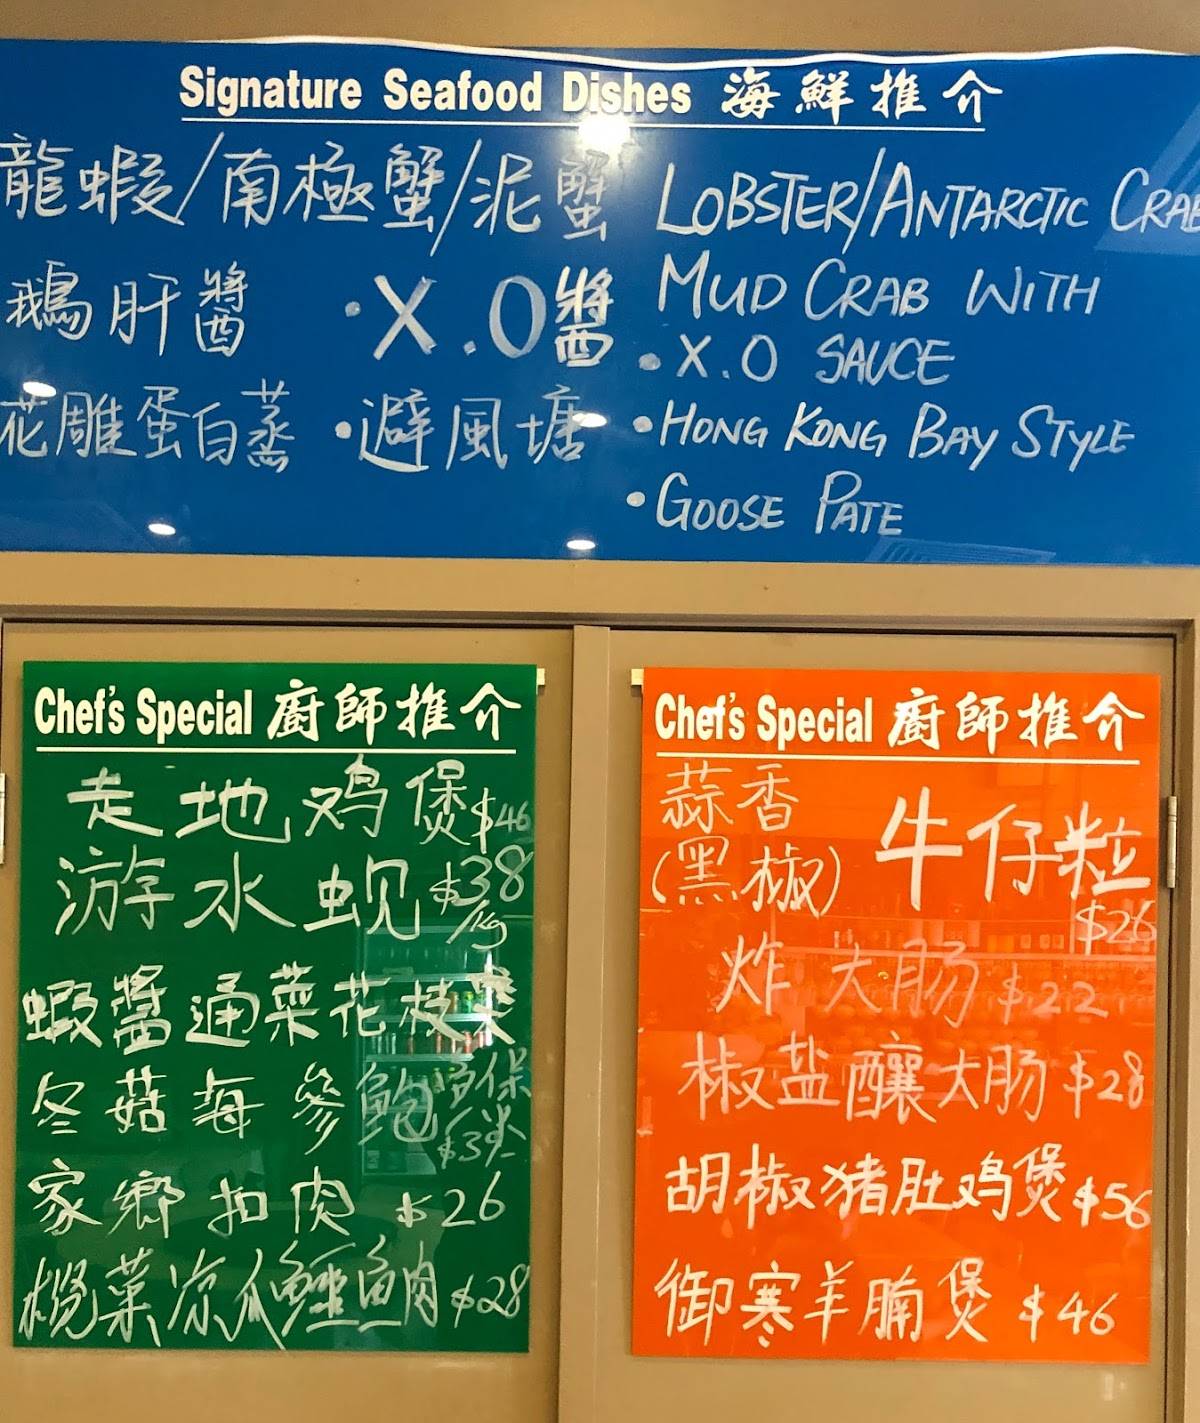 Signature Seafood Dishes 海鮮推介
龍蝦/南極蟹/泥蟹
鵝肝醬 ·X.O醬
花雕蛋白蒸 ·避風塘
LOBSTER/ANTARCTIC CRAB
MUD CRAB WITH
·X.O SAUCE
·HONG KONG BAY STYLE
·GOOSE PATE
Chef's Special 廚師推介
走地鸡煲$46
游水蚬$38/kg
蝦醬通菜花枝
冬菇海參鲍鱼保
家鄉扣肉 $26
榄菜凉瓜 $28
Chef's Special 廚師推介
蒜香
(黑椒) 牛仔粒
$26
炸大肠$22
椒盐釀大肠$28
胡椒猪肚鸡煲$56
御寒羊腩煲 $46